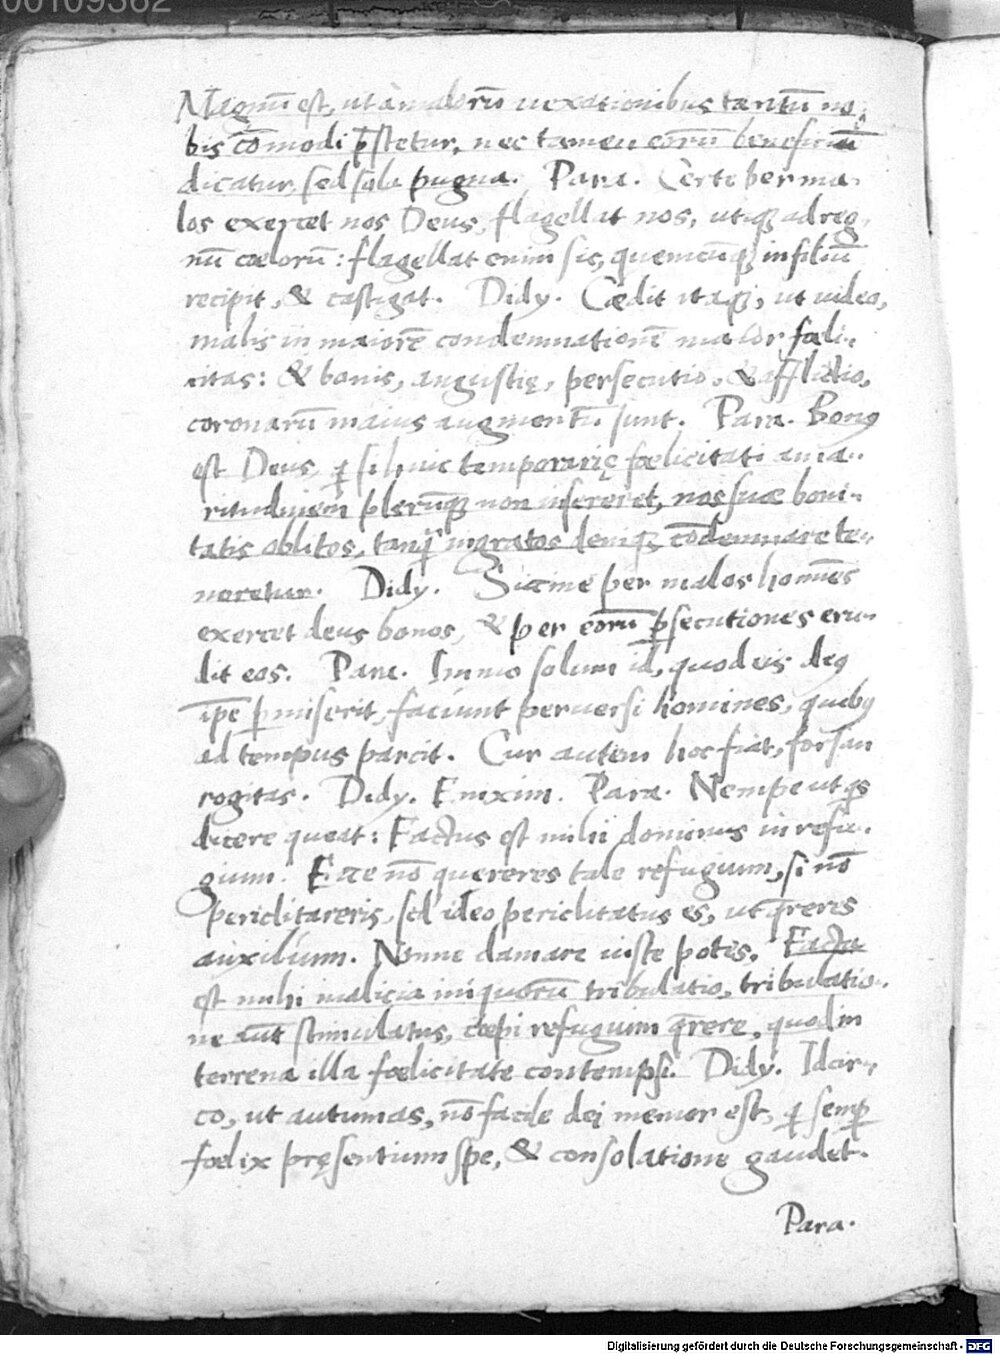 00109362
Magnũ est, ut à malorũ uexationibus tantũ no,
bis cõmodi p̃stetur, nec tamen eorũ beneficiũ
dicatur, sed sola pugna. Para. Certe per ma,
los exercet nos Deus, flagellat nos, utiqꝫ ad reg,
nũ cœlorũ: flagellat enim sic, quemcũqꝫ in filiũ
recipit, & castigat. Didy. Cædit itaqꝫ, ut uideo,
malis in maiorẽ condemnationẽ maior fœli,
citas: & bonis, angustię, persecutio, & afflictio,
coronarũ maius augmentũ sunt. Para. Bonꝰ
est Deus, q̃ si huic temporarię fœlicitati ama,
ritudinem plerũqꝫ non insereret, nos suæ boni,
tatis oblitos, tanq̃ ingratos deniqꝫ cõdemnare te,
neretur. Didy. Siccine per malos homĩes
exercet deus bonos, & per eorũ p̱secutiones eru,
dit eos. Para. Immo solum id, quod eis deꝰ
ip̃e p̱miserit, faciunt peruersi homines, quibꝰ
ad tempus parcit. Cur autem hoc fiat, forsan
rogitas. Didy. Enixim. Para. Nempe ut q̃s
dicere queat: Factus est mihi dominus in refu,
gium. Ecce nõ quereres tale refugium, si nõ
periclitareris, sed ideo periclitatus es, ut q̃reres
auxilium. Nonne clamare iuste potes, Facta
est mihi malicia iniquorũ tribulatio, tribulatio,
ne aũt stimulatus, cœpi refugium q̃rere, quod in
terrena illa fœlicitate contempsi. Didy. Idcir,
co, ut autumas, nõ facile dei memor est, q̃ semp̱
fœlix pręsentium spe, & consolatione gaudet.
Para.
Digitalisierung gefördert durch die Deutsche Forschungsgemeinschaft - DFG